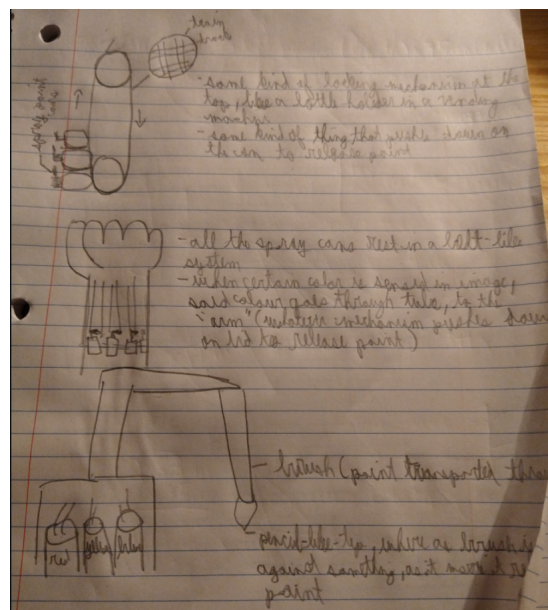 train
track
- some kind of locking mechanism at the
top, like a bottle holder in a vending
machine
- some kind of thing that pushes down on
the can to release paint
- all the spray cans rest in a belt-like
system
- when certain color is sensed in image,
said colour goes through tube, to the
"arm" (whatever mechanism pushes down
on lid to release paint)
brush (paint transported thro
pencil-like-tip, where as brush is
against something, as it moves it re
paint
red
yellow
blue